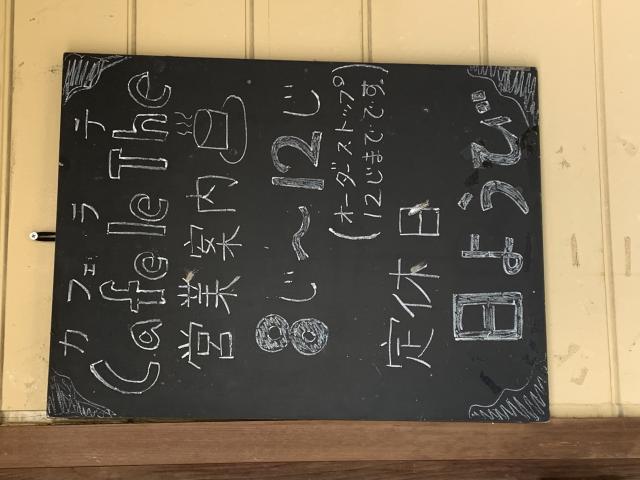 カフェラテ
Cafe le The
営業案内
8じ〜12じ
(オーダーストップ。
12じまでです。
定休日
日ようび